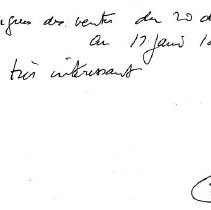 des ventes du 20 d
au 17 janv 1
très intéressant